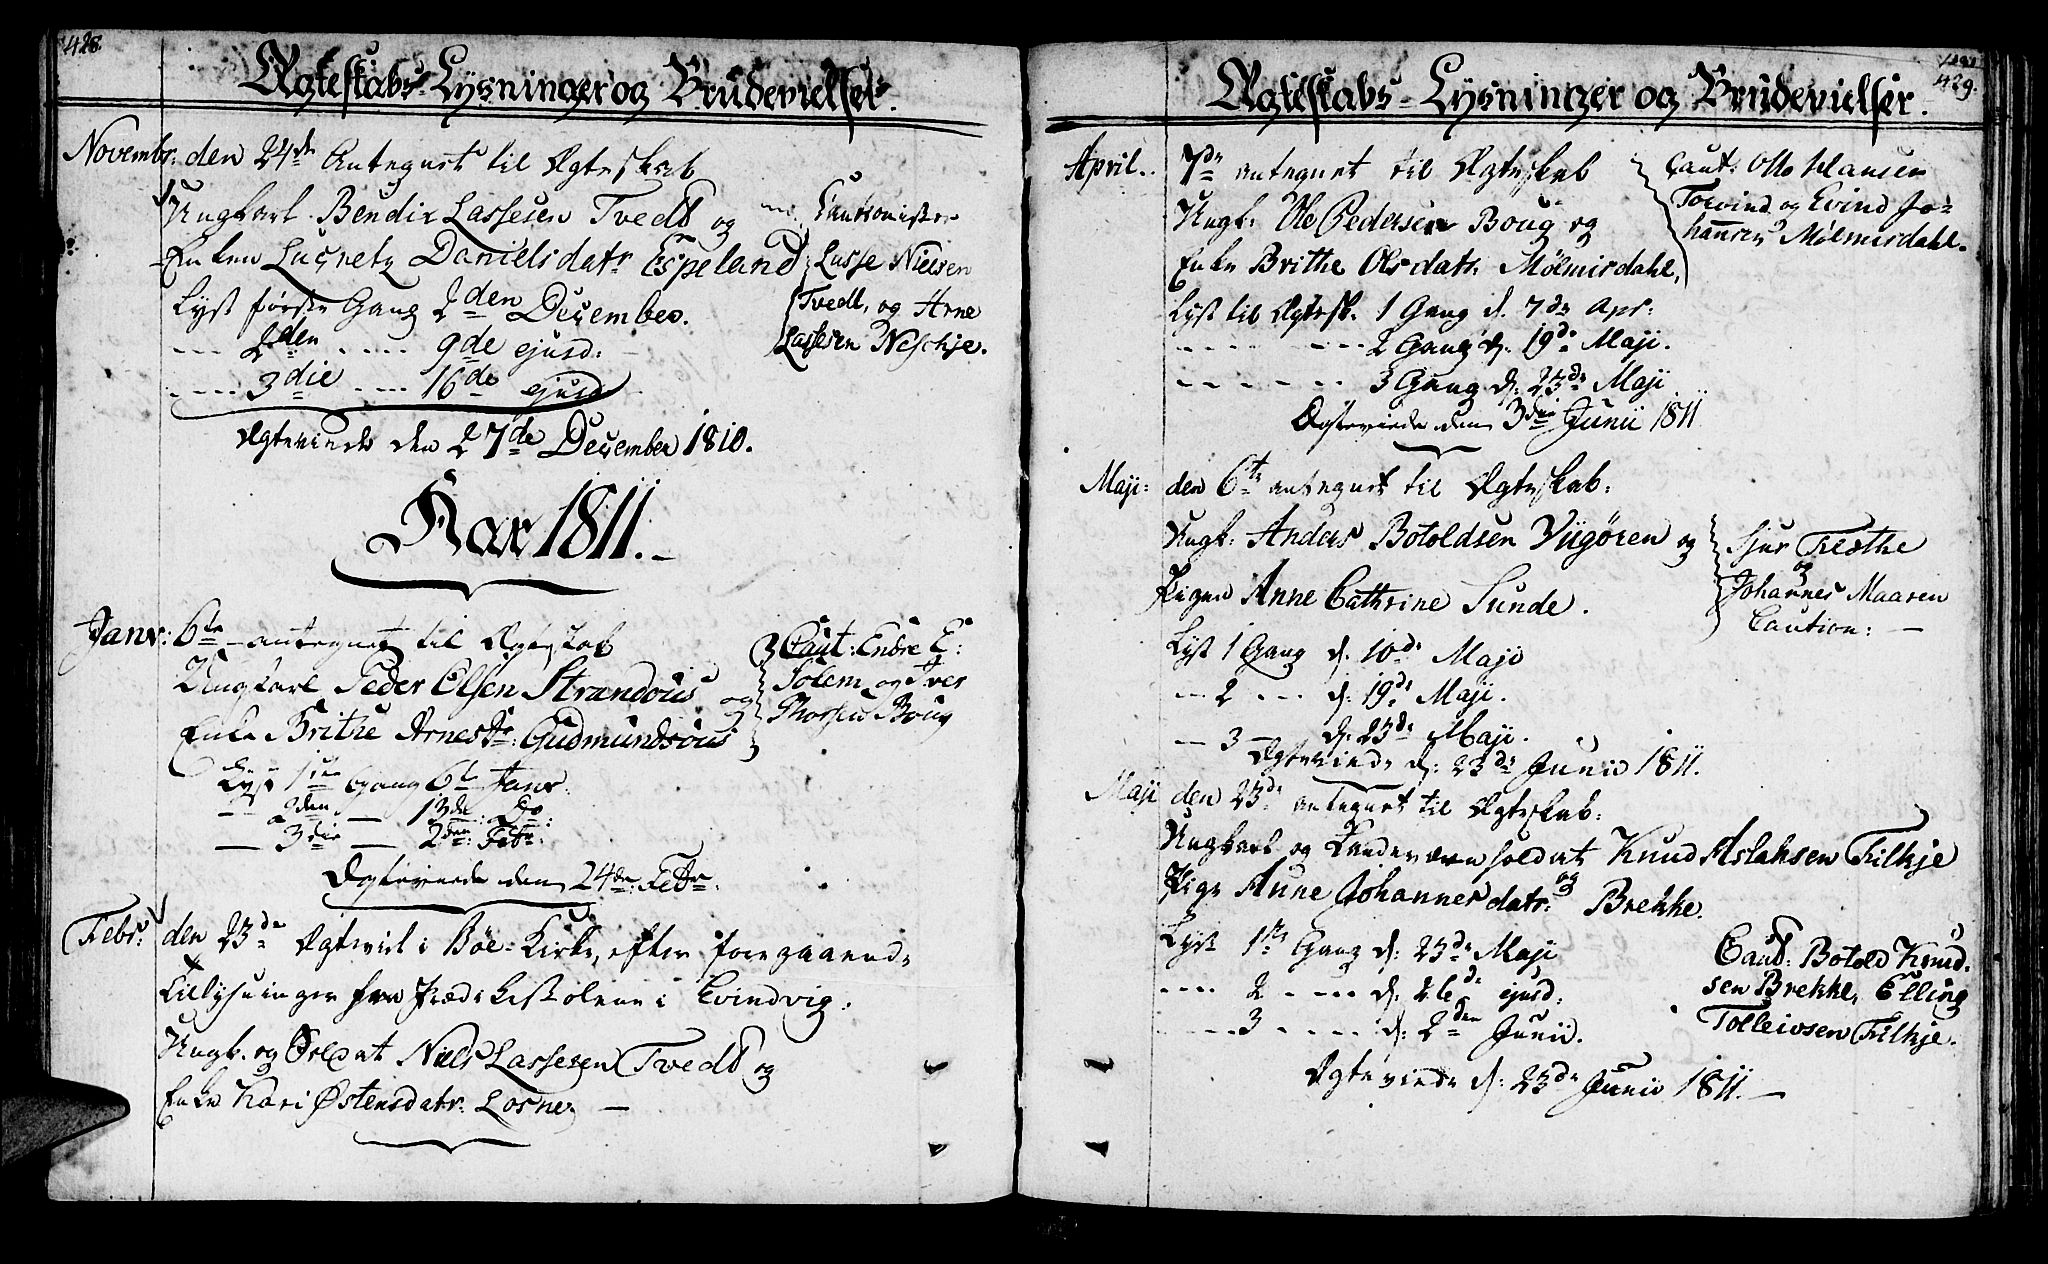 428.
Ægteskabs-Lysninger og Brudevielser.
Novembr: den 24de Antegnet til Ægteskab
Ungkarl Bendix Lassesen Tvedt og
Enken Lucretz Danielsdatr Espeland
Cautionister
Lasse Nielsen
Tvedt, og Arne
Lassesen Neschje.
Lyst første Gang 2den December.
--- 2den ---- 9de ejusd:
---- 3die ---- 16de ejusd
Ægteviede den 27de December 1810.
Aar 1811.
Janr: 6te antegnet til Ægteskab
Ungkarl Peder Olsen Strandous og
Enke Brithe Arnesdr: Gudmundsous
Caut: Endre E:
Solem og Iver
Thorsen Boug
Lyst 1ste Gang 6te Janr.
-- 2den — 13de: Do:
— 3die — 2den: Febr.
Ægteviede den 24de: Febr.
Febr: den 23de Ægteviet i Böe-Kirke, efter foregaaende
Tillysninger fra Prædikestolene i Evindvig:
Ungk. og Soldat Niels Lassesen Tvedt og
Enke Kari Østensdatr: Losne. —
429.
Ægteskabs-Lysninger og Brudevielser.
April. 7de antegnet til Ægteskab
Ungk: Ole Pedersen Boug og
Enke Brithe Olsdatr. Mølmisdahl,
Caut: Otto Hansen
Torvind og Evind Jo-
hannes Mølmisdahl.
Lyst til Ægtesk. 1 Gang d. 7de Apr:
---- --- 2 Gang d. 19de Maji.
------ 3 Gang d: 23de Maji
Ægteviede den 3die Junii 1811
Maji: den 6te antegnet til Ægteskab:
Ungk: Anders Botoldsen Viigøren og
Pigen Anne Cathrine Sunde.
Sjur Træthe
og
Johannes Maaren
Caution: —
Lyst 1 Gang d. 10de Maji
-- 2 --- d: 19de Maji.
— 3 — d: 23de Maji.
Ægteviede d: 23de Junii 1811.
Maji den 23de antegnet til Ægteskab:
Ungkarl og Landeværn soldat Knud Aslaksen Filkje
og
Pige Anne Johannesdatr: Brekke.
Lyst 1ste Gang d: 23de Maji
---- 2 ---- d: 26de ejusd:
---- 3 ----- d: 2den Junii.
Caut: Botold Knud-
sen Brekke, Elling
Tolleivsen Filkje.
Ægteviede d: 23de Junii 1811. —